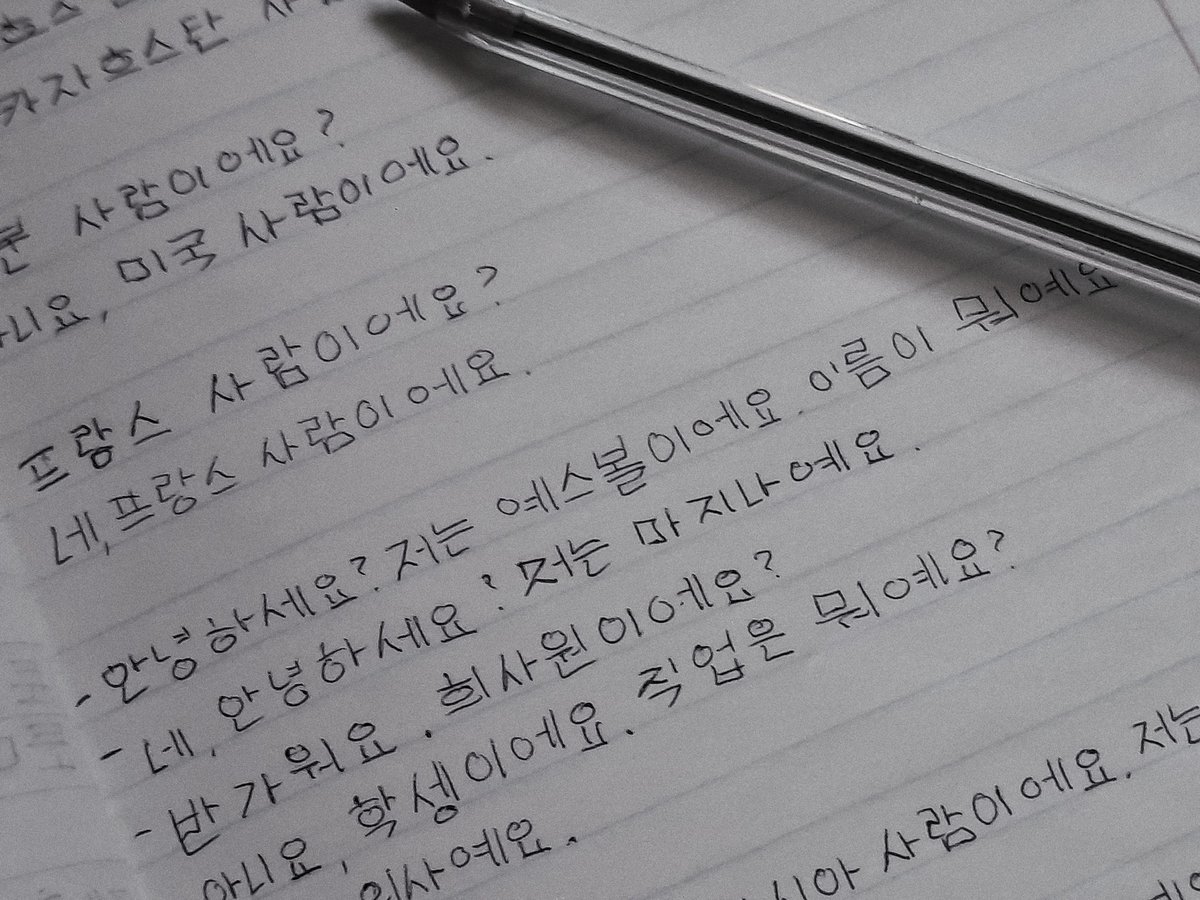 카자흐스탄
사람이에요?
미국 사람이에요.
프랑스 사람이에요?
네, 프랑스 사람이에요.
- 안녕하세요? 저는 예스볼이에요. 이름이 뭐예요
- 네, 안녕하세요? 저는 마지나예요.
- 반가워요. 희사원이에요?
아니요, 학셍이에요. 직업은 뭐예요?
의사예요.
시아 사람이에요. 저는